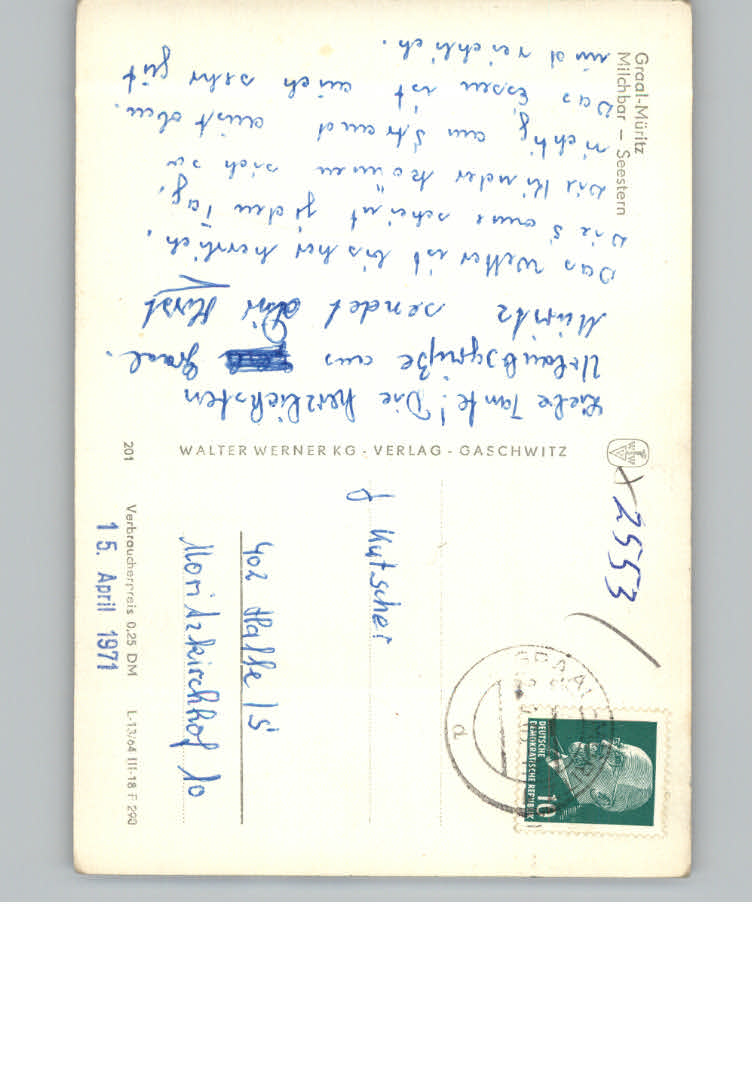 Graal-Müritz
Milchbar – Seestern
Liebe Tante! Die herzlichsten
Urlaubsgrüße aus Graal-
Müritz sendet Dir Horst
Das Wetter ist bisher herrlich.
Die Sonne scheint jeden Tag.
Die Kinder können sich so
richtig am Strand austoben.
Das Essen ist auch sehr gut
und reichlich.
WALTER WERNER KG · VERLAG - GASCHWITZ
201
Verbraucherpreis 0,25 DM
L-13/64 III-18 F 290
15. April 1971
x 2553 /
GRAAL-MÜRITZ
d
DEUTSCHE
DEMOKRATISCHE REPUBLIK
10
J Kutscher
402 Halle/S
Moritzkirchhof 10